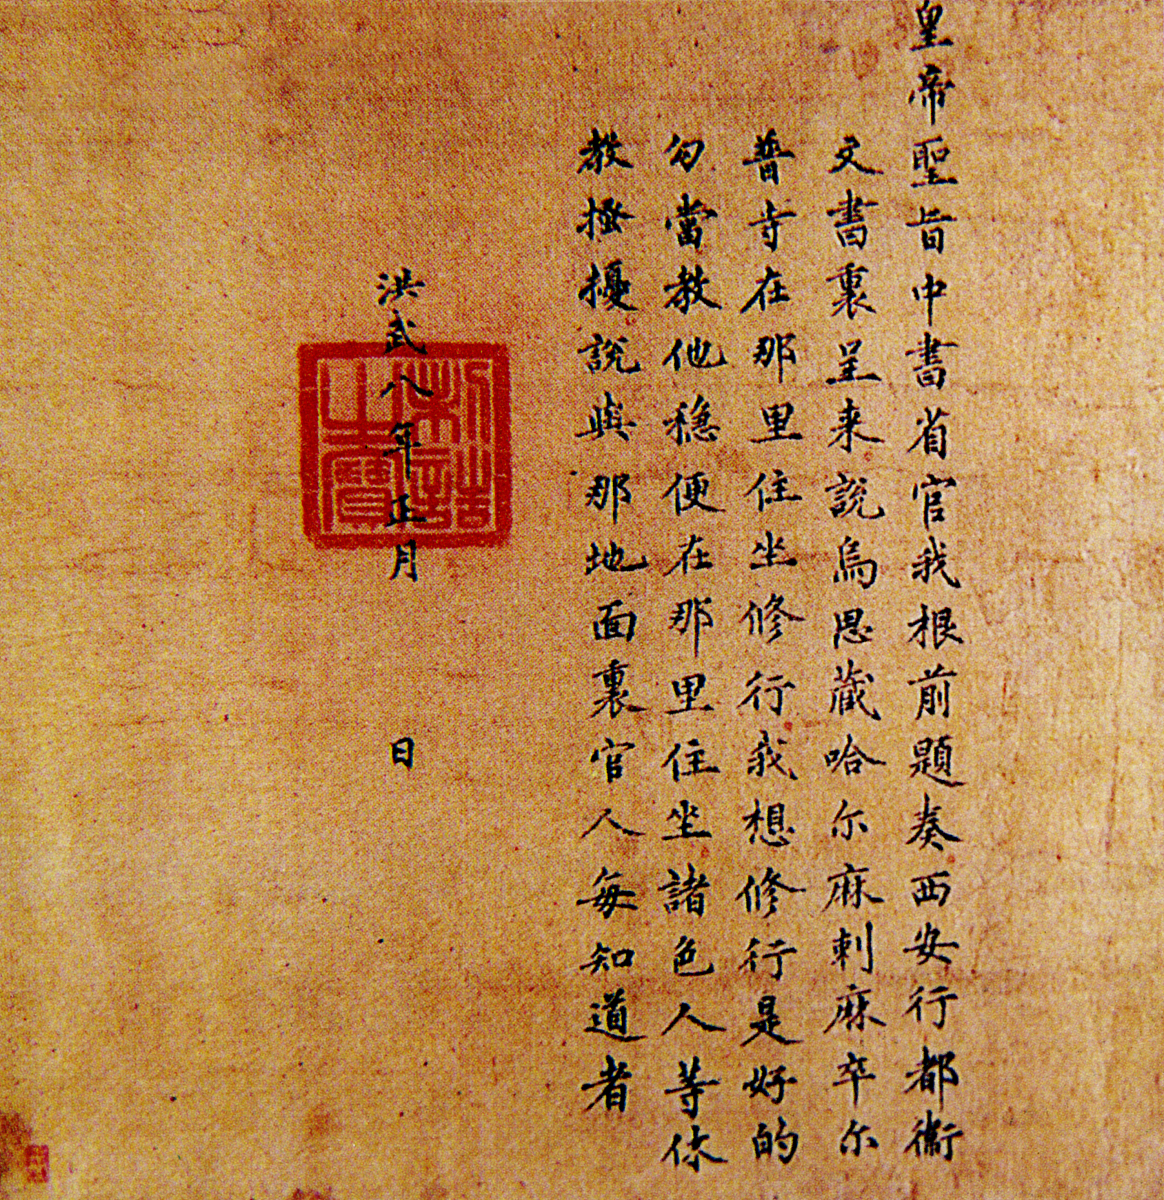 皇帝聖旨中書省官我根前題奏西安行都衛
文書裏呈来説烏思藏哈尔麻剌麻卒尔
普寺在那里住坐修行我想修行是好的
勾當教他穩便在那里住坐諸色人等休
教搔擾説與那地面裏官人每知道者
洪武八年正月 日
制誥之寶